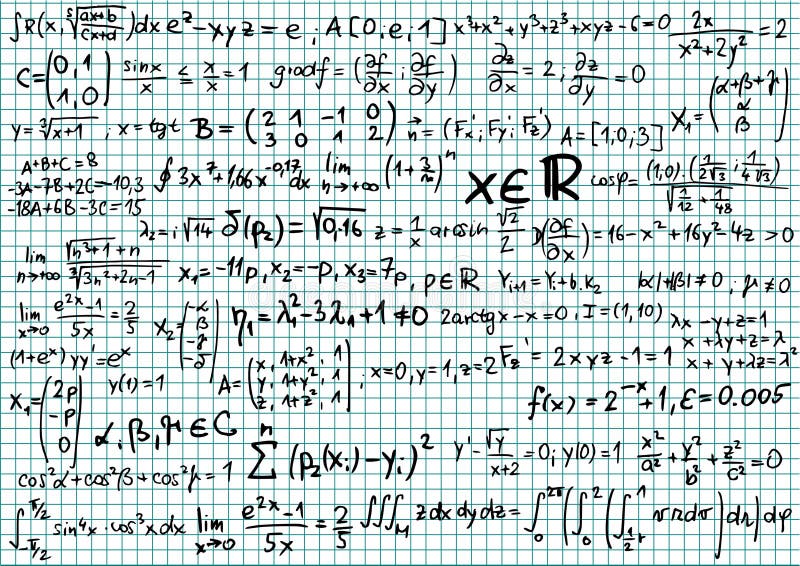 ∫R(x, ⁵√((ax+b)/(cx+d)))dx e^z - xyz = e ; A[0;e;1] x³+x²+y³+z³+xyz-6=0 2x/(x²+2y²) = 2
C=(0,1 / 1,0) sinx/x ≤ x/x = 1 gradf = (∂f/∂x ; ∂f/∂y) ∂z/∂x = 2 ; ∂z/∂y = 0
y = ³√(x+1) ; x = tgt B = (2 1 -1 0 / 3 0 1 2) n⃗ = (Fx'; Fy'; Fz') A=[1;0;3] X₁ = (α+β+γ / α / β)
A+B+C=8
-3A-7B+2C=-10,3
-18A+6B-3C=15
∮3x⁷+1,66x^(-0,17) dx lim n→+∞ (1+3/n)ⁿ x∈ℝ cosφ = (1,0).(1/(2√3) ; 1/(4√3)) / √(1/12 + 1/48)
λ₂=i√14 δ(p₂)=√0,16 z = 1/x arcsin √2/2 (∂f/∂x)=16-x²+16y²-4z >0
lim n→+∞ √(n³+1+n) / ³√(3n²+2n-1) x₁=-11p, x₂=-p, x₃=7p, p∈ℝ Yᵢ₊₁=Yᵢ+b.k₂ |α|+|β|≠0 ; γ≠0
lim x→0 (e^(2x)-1)/5x = 2/5 X₂=(-α / β / -γ / -δ) η₁=λ₁²-3λ₁+1≠0 2arctgx-x=0, I=(1,10) λx-y+z=1
x+λy+z=λ
x+y+λz=λ²
(1+e^x)yy'=e^x y(1)=1 A=(x, 1+x², 1 / y, 1+y², 1 / z, 1+z², 1) ; x=0, y=1, z=2 Fz'=2xyz-1=1
X₁=(2p / -p / 0) α,β,γ∈C f(x)=2^(-x)+1, ε=0.005
cos²α+cos²β+cos²γ=1 n ∑ (p₂(xᵢ)-yᵢ)² y'-√y/(x+2)=0; y(0)=1 x²/a²+y²/b²+z²/c²=0
∫_(-π/2)^(π/2) sin⁴x·cos³xdx lim x→0 (e^(2x)-1)/5x = 2/5 ∭_M zdxdydz=∫₀^(2π)(∫₀²(∫_(½r)^1 vrdv)dr)dφ